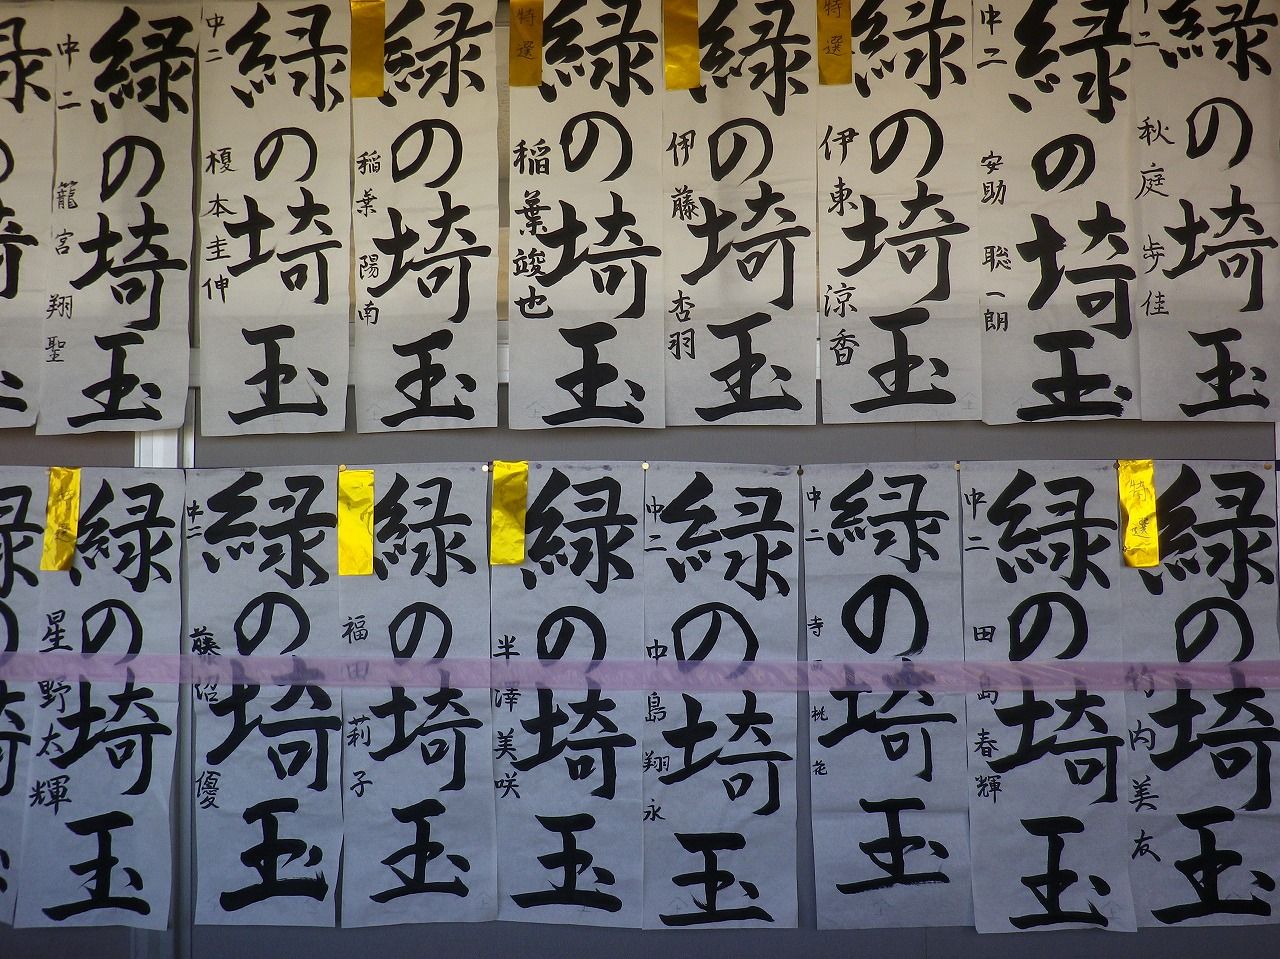 緑の埼玉
中二 秋庭 歩佳
緑の埼玉
中二 安助 聡一朗
緑の埼玉
特選
伊東 涼香
緑の埼玉
伊藤 杏羽
緑の埼玉
特選
稲葉竣也
緑の埼玉
稲葉 陽南
緑の埼玉
中二 榎本圭伸
緑の埼玉
中二 籠宮 翔聖
緑の埼玉
特選
竹内美友
緑の埼玉
中二 田島春輝
緑の埼玉
中二 寺 桃花
緑の埼玉
中二 中島 翔永
緑の埼玉
半澤 美咲
緑の埼玉
福田 莉子
緑の埼玉
中二 藤沼 優
緑の埼玉
星野太輝